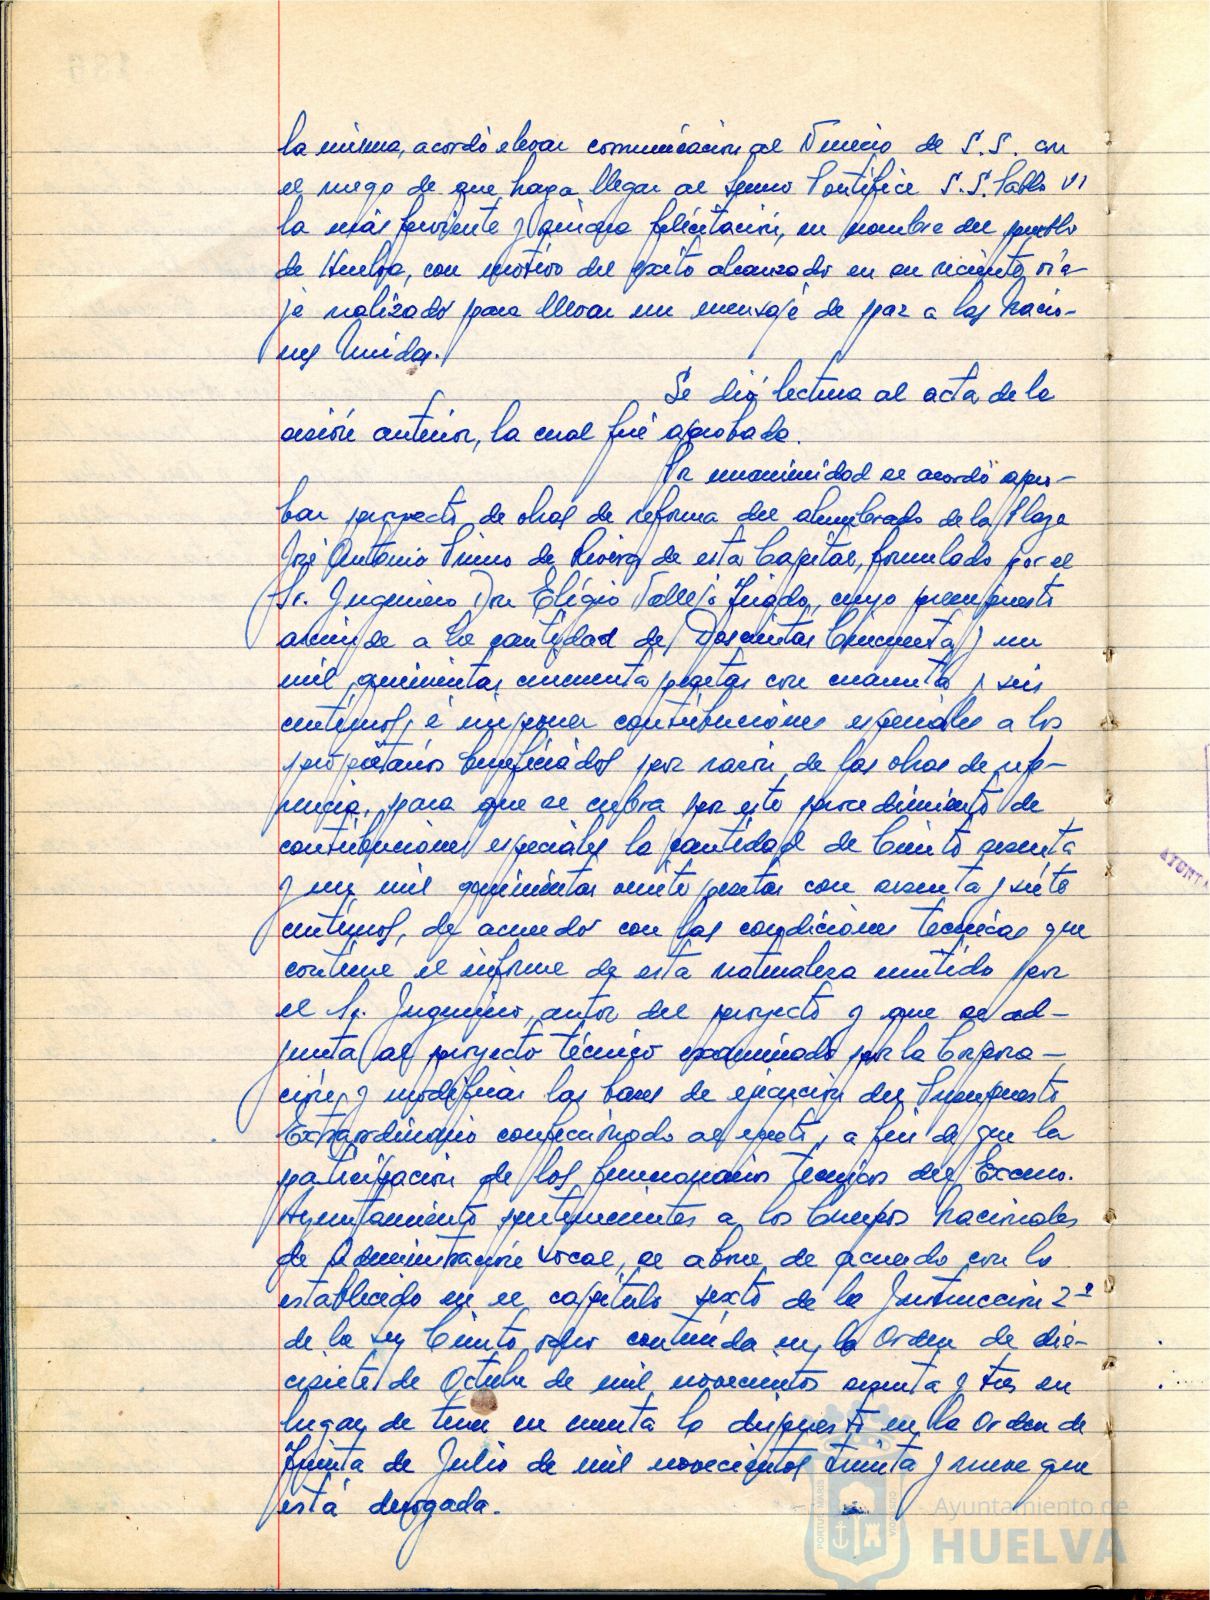 la misma, acordó elevar comunicación al Nuncio de S.S. con
el ruego de que haga llegar al Sumo Pontífice S.S. Pablo VI
la más ferviente y sincera felicitación, en nombre del pueblo
de Huelva, con motivo del éxito alcanzado en su reciente via-
je realizado para llevar un mensaje de paz a las Nacio-
nes Unidas.
Se dió lectura al acta de la
sesión anterior, la cual fué aprobada.
Por unanimidad se acordó apro-
bar proyecto de obras de reforma del alumbrado de la Plaza
José Antonio Primo de Rivera de esta Capital, formulado por el
Sr. Ingeniero Don Eligio Vallejo, cuyo presupuesto
asciende a la cantidad de Doscientas Cincuenta y un
mil quinientas cincuenta pesetas con cuarenta y seis
céntimos, é imponer contribuciones especiales a los
propietarios beneficiados por razón de las obras de refe-
rencia, para que se cubra por este procedimiento de
contribuciones especiales la cantidad de Ciento sesenta
y un mil quinientas veinte pesetas con sesenta y siete
céntimos, de acuerdo con las condiciones técnicas que
contiene el informe de esta naturaleza emitido por
el Sr. Ingeniero, autor del proyecto y que se ad-
junta al proyecto técnico examinado por la Corpora-
ción, y modificar las bases de ejecución del Presupuesto
Extraordinario confeccionado al efecto, a fin de que la
participación de los funcionarios técnicos del Excmo.
Ayuntamiento pertenecientes a los Cuerpos Nacionales
de Administración Local, se abone de acuerdo con lo
establecido en el capítulo sexto de la Instrucción 2ª
de la Ley Ciento ocho contenida en la Orden de die-
cisiete de Octubre de mil novecientos sesenta y tres en
lugar de tener en cuenta lo dispuesto en la Orden de
Treinta de Julio de mil novecientos treinta y nueve que
está derogada.
Ayuntamiento de
HUELVA